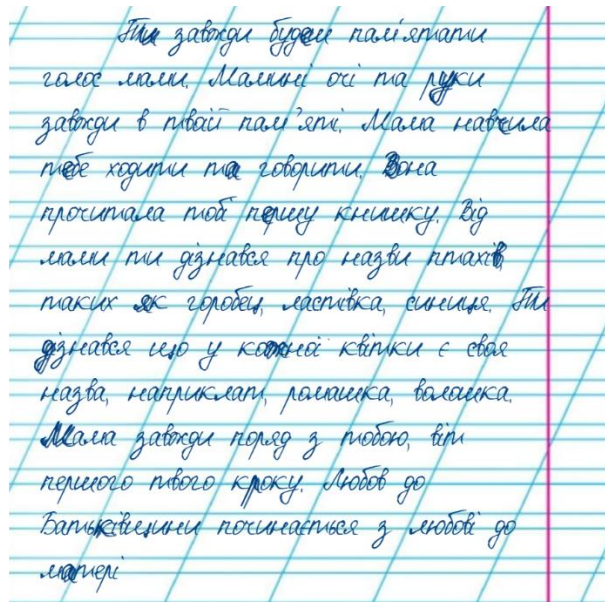 Ти завжди будеш пам'ятати
голос мами. Мамині очі та руки
завжди в твоїй пам'яті. Мама навчила
тебе ходити та говорити. Вона
прочитала тобі першу книжку. Від
мами ти дізнався про назви птахів,
таких як горобец, ластівка, синиця. Ти
дізнався що у кожної квітки є своя
назва, наприклат, ромашка, волошка.
Мама завжди поряд з тобою, віт
першого твого кроку. Любов до
Батьківщини починається з любові до
матері